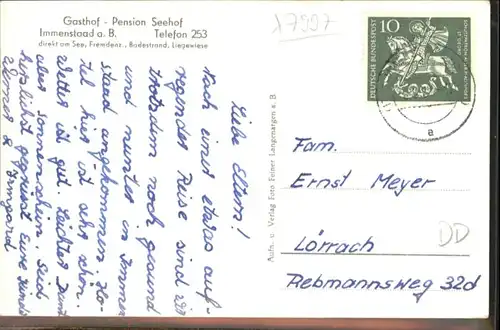 Gasthof - Pension Seehof
Immenstaad a. B. Telefon 253
direkt am See, Fremdenz., Badestrand, Liegewiese
17997
Liebe Eltern!
Nach einer etwas auf-
regenden Reise sind wir
trotzdem noch gesund
und munter in Immen-
staad angekommen. Ho-
tel hier ist sehr schön.
Wetter ist gut. Leichter Dunst
aber Sonnenschein. Seid
herzlichst gegrüsst Eure Kinder
Werner & Irmgard
Autn. u. Verlag Foto Feiner Langenargen a. B
10
DEUTSCHE BUNDESPOST
a
Fam.
Ernst Meyer
Lörrach
Rebmannsweg 32d
DD